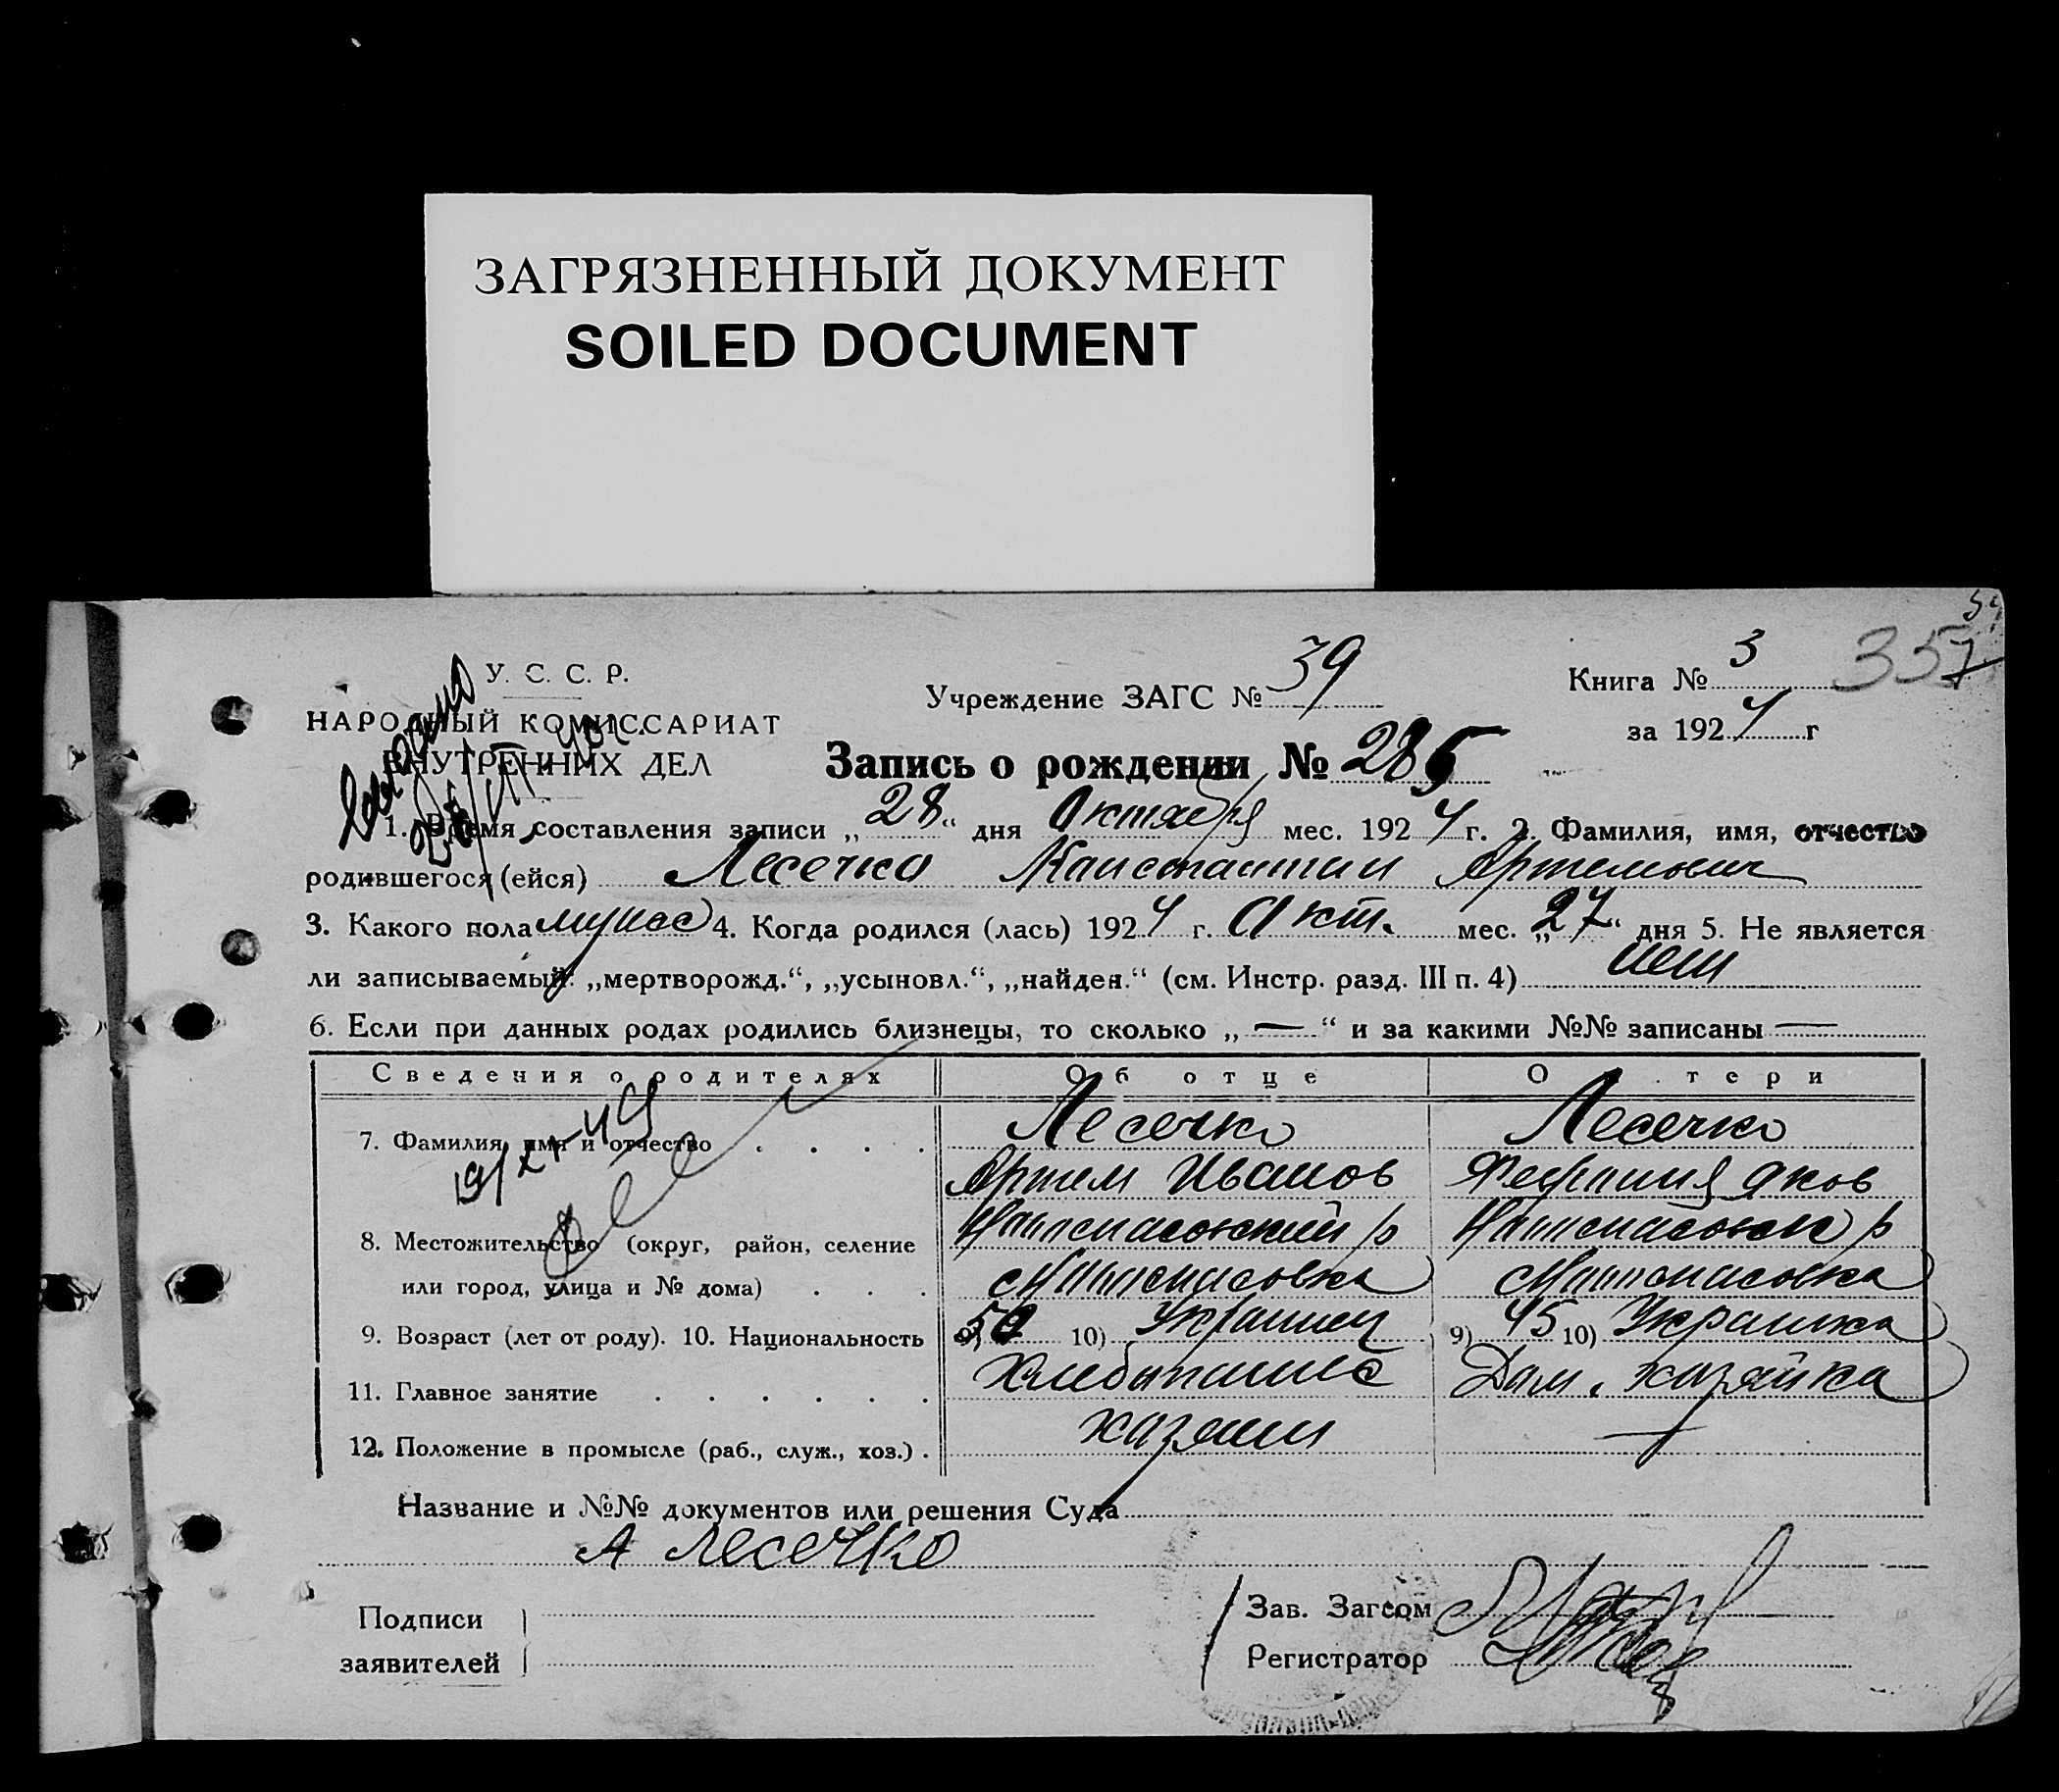 ЗАГРЯЗНЕННЫЙ ДОКУМЕНТ
SOILED DOCUMENT
357
У. С. С. Р.
НАРОДНЫЙ КОМИССАРИАТ
ВНУТРЕННИХ ДЕЛ
Учреждение ЗАГС № 39
Книга № 3
за 1924 г
Запись о рождении № 285
1. Время составления записи „28“ дня Октября мес. 1924 г. 2. Фамилия, имя, отчество
родившегося (ейся) Лесечко Констонтин Артемович
3. Какого пола мужс 4. Когда родился (лась) 1924 г. Окт. мес. „27“ дня 5. Не является
ли записываемый: „мертворожд.“, „усыновл.“, „найден.“ (см. Инстр. разд. III п. 4) нет
6. Если при данных родах родились близнецы, то сколько „—“ и за какими №№ записаны —
Сведения о родителях Об отце О тери
7. Фамилия, имя и отчество . . . . Лесечко Лесечко
Артем Иванов Яков
8. Местожительство (округ, район, селение
или город, улица и № дома) . . .
9. Возраст (лет от роду). 10. Национальность 50 10) Украинец 9) 45 10) Украинка
11. Главное занятие . . . . . . Хлебопашес Дом. хозяйка
12. Положение в промысле (раб., служ., хоз.) . хозяин —
Название и №№ документов или решения Суда
А Лесечко
Подписи
заявителей
Зав. Загсом
Регистратор